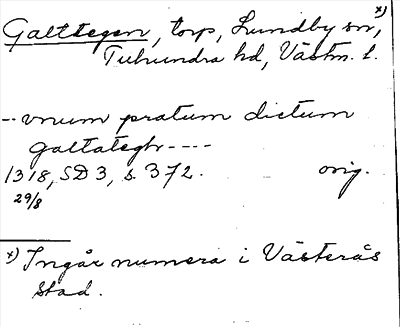 x)
Galttegen, torp, Lundby sn,
Tuhundra hd, Västm. l.
-- vnum pratum dictum
galtategh ----
1318, SD 3, s. 372. orig.
29/8
x) Ingår numera i Västerås
stad.